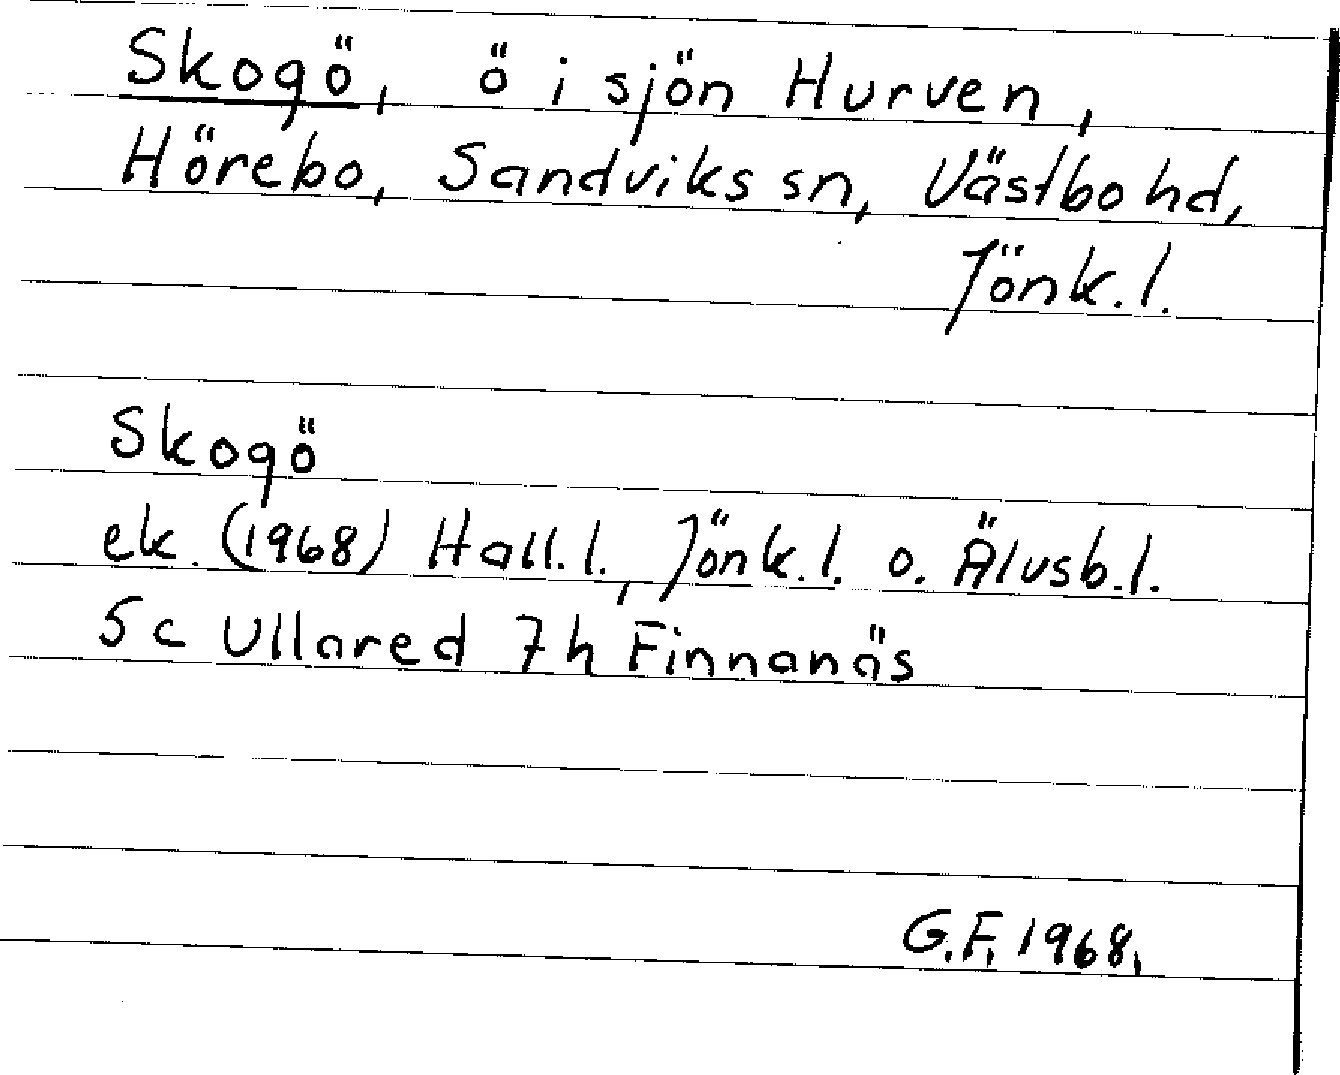 Skogö, ö i sjön Hurven,
Hörebo, Sandviks sn, Västbo hd,
Jönk.l.
Skogö
ek. (1968) Hall.l., Jönk.l. o. Älvsb.l.
5c Ullared 7h Finnanäs
G.F. 1968.